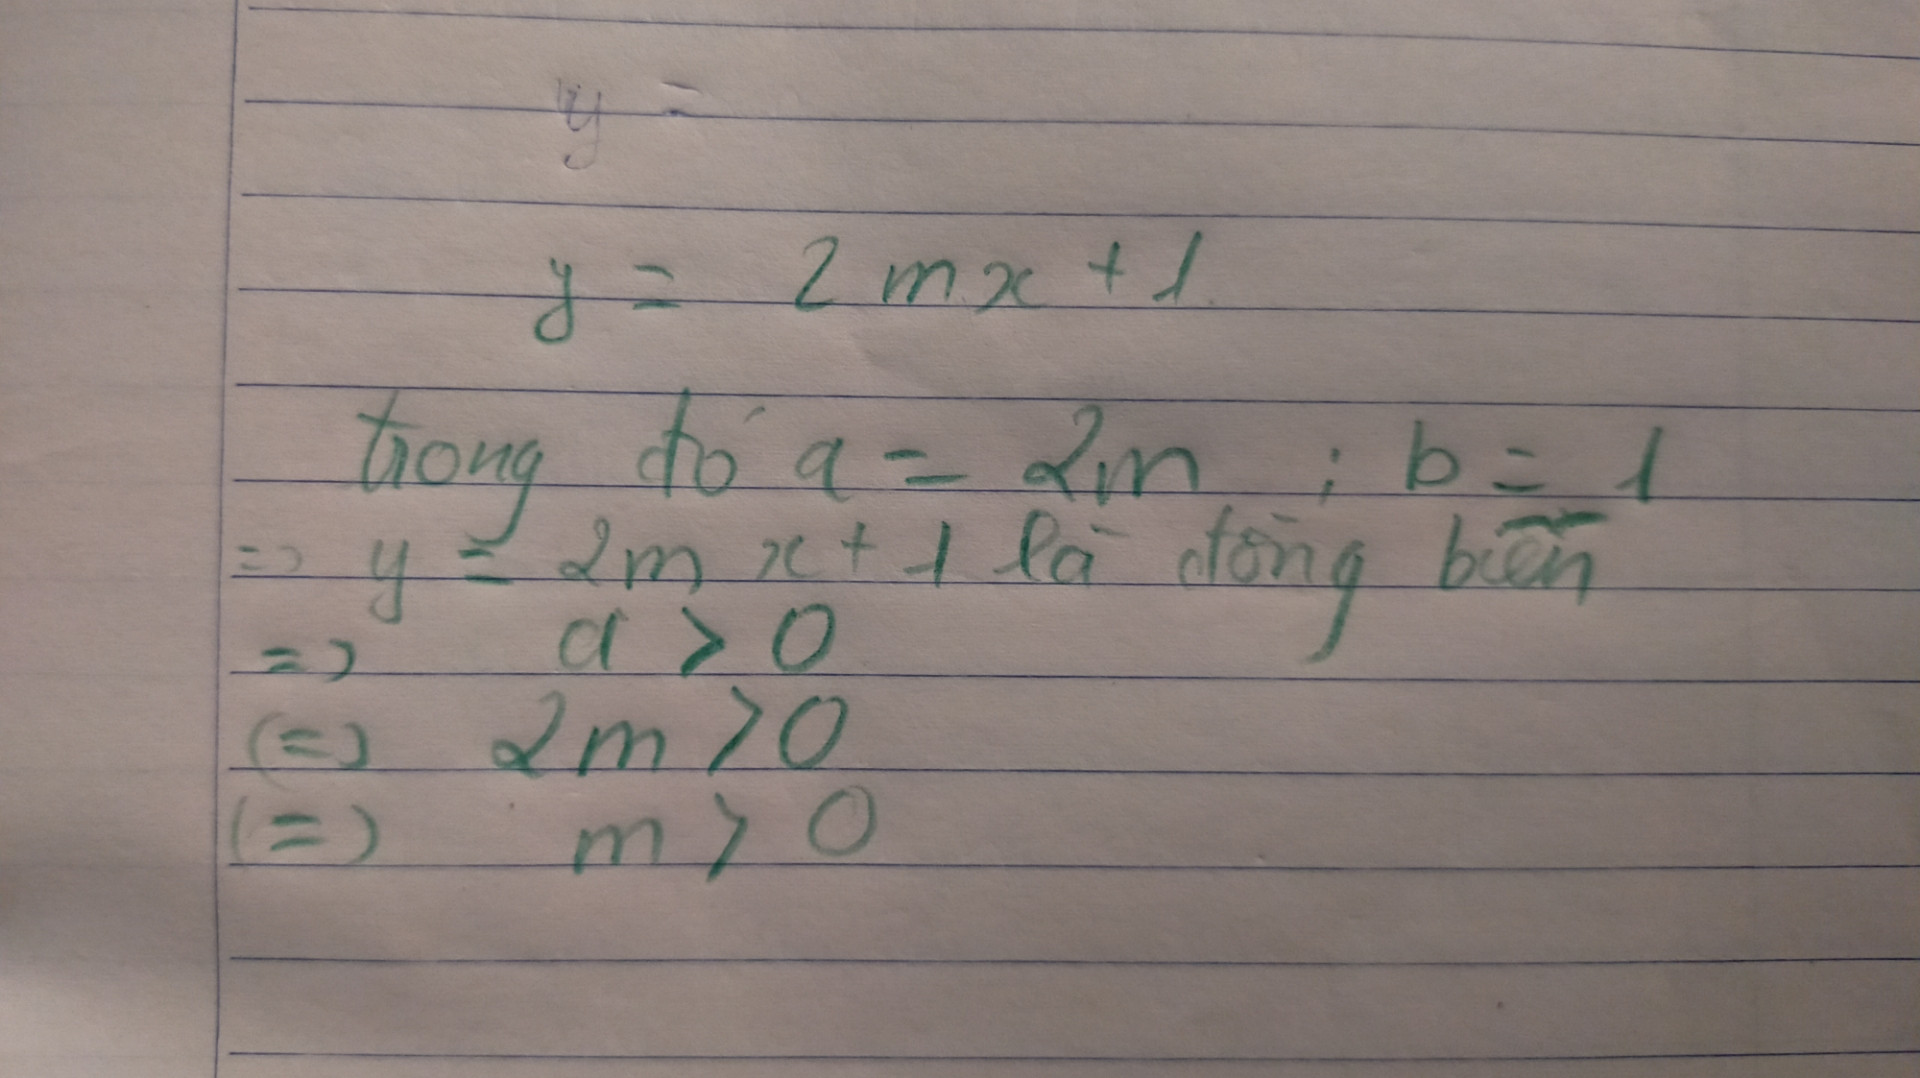 y =
y = 2mx + 1
trong đó a = 2m ; b = 1
=> y = 2mx + 1 là đồng biến
=> a > 0
(=) 2m > 0
(=) m > 0